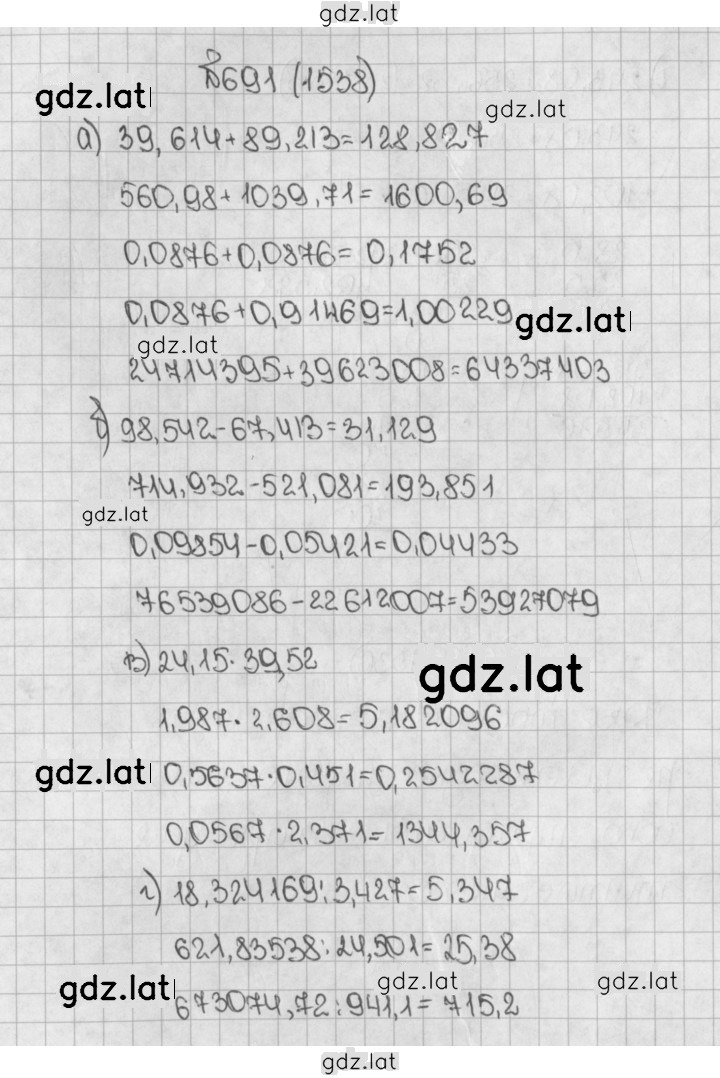 gdz.lat
№691 (1538)
gdz.lat
gdz.lat
а) 39,614+89,213=128,827
560,98+1039,71=1600,69
0,0876+0,0876=0,1752
0,0876+0,91469=1,00229
gdz.lat
gdz.lat
24714395+39623008=64337403
б) 98,542-67,413=31,129
714,932-521,081=193,851
gdz.lat
0,09854-0,05421=0,04433
76539086-22612007=53927079
в) 24,15·39,52
gdz.lat
1,987·2,608=5,182096
gdz.lat
0,5637·0,451=0,2542287
0,0567·2,371=1344,357
г) 18,324169:3,427=5,347
621,83538:24,501=25,38
gdz.lat
gdz.lat
gdz.lat
673074,72:941,1=715,2
gdz.lat